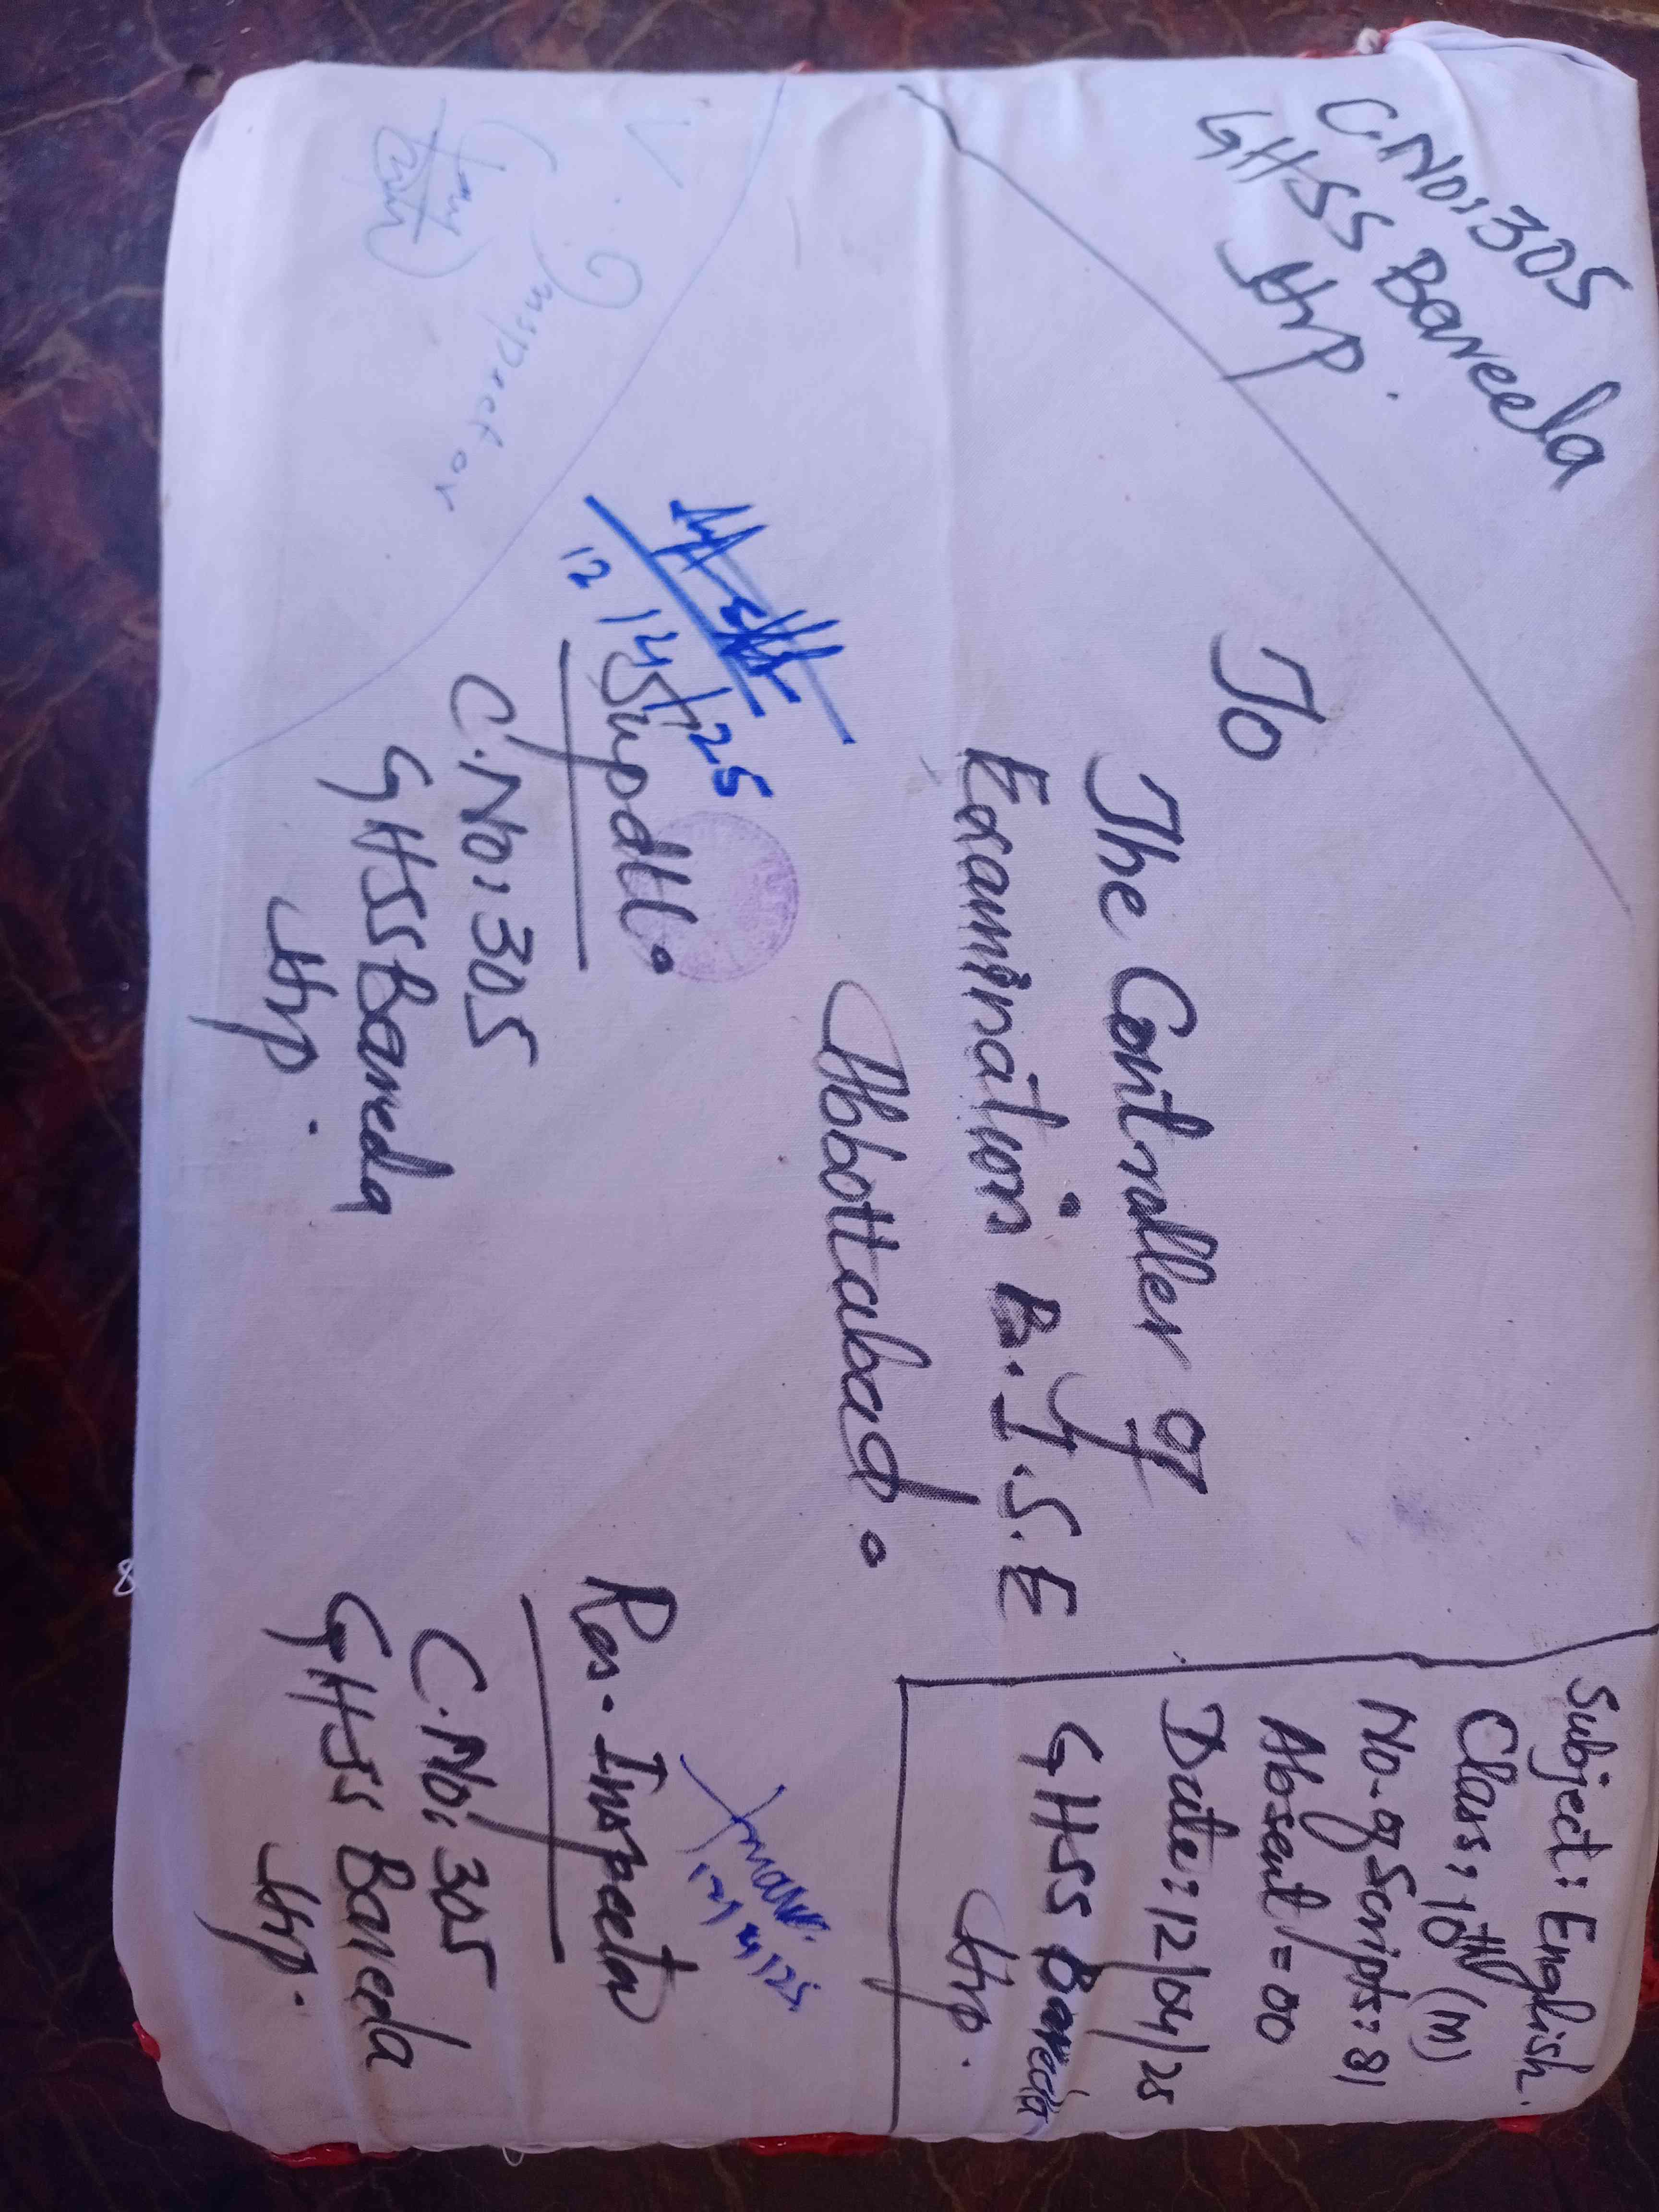 C.No: 305
GHSS Bareela
Atrp.
Subject: English.
Class: 10th (M)
No. of Scripts: 81
Absent = 00
Date: 12/04/25
GHSS Bareela
Atrp.
To
The Controller of
Examination B.I.S.E
Abbottabad.
12/4/25
Supdtt.
C.No: 305
GHSS Bareela
Atrp.
12/4/25
Res. Inspector
C.No: 305
GHSS Bareela
Atrp.
V. Inspector